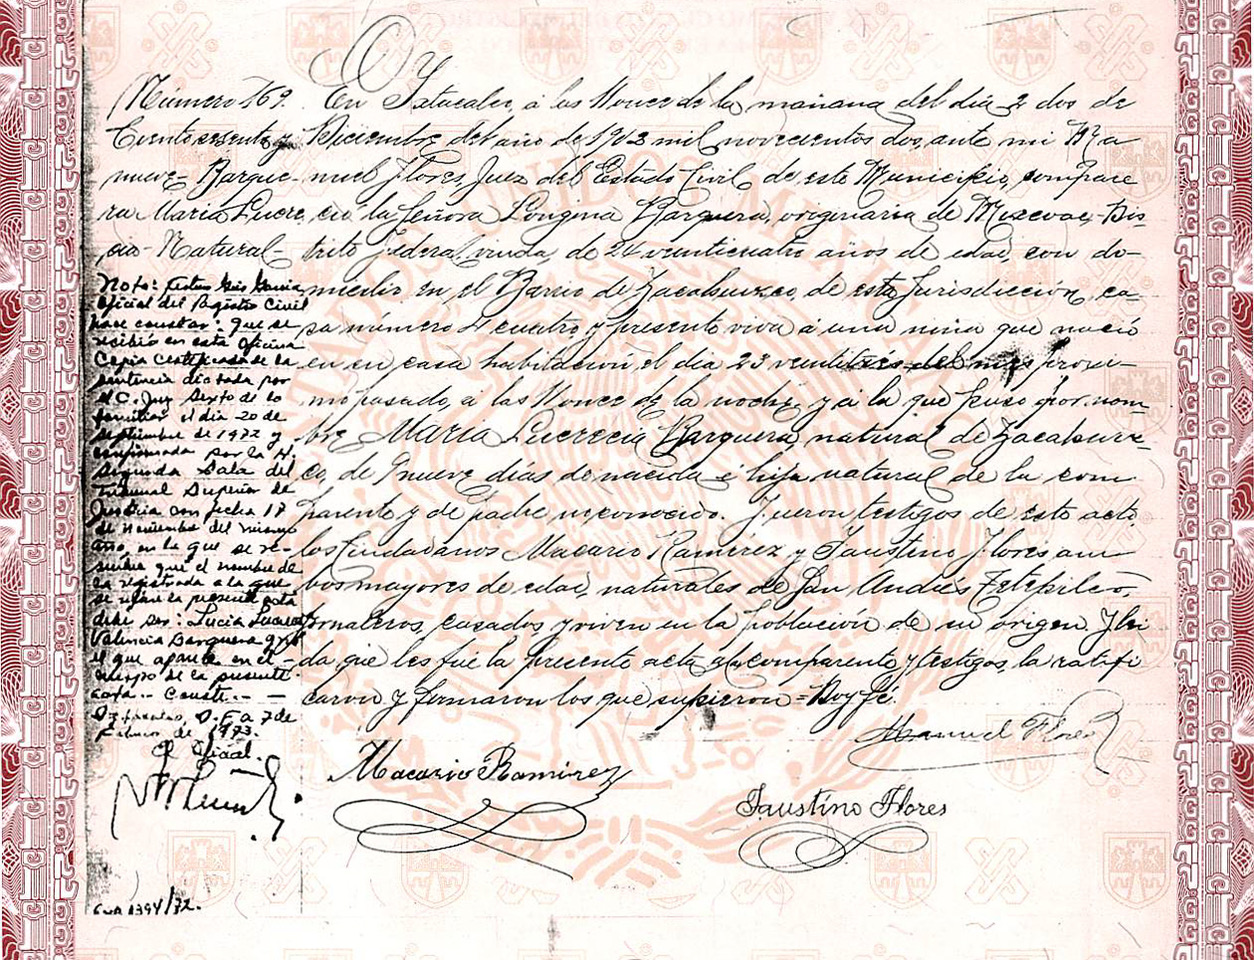 Número 169.
Ciento sesenta y
nueve- Barque-
ra María Lucre
cia- Natural-
Nota:
Oficial del Registro Civil
hace constar: Que se
recibió en esta Oficina
Copia Certificada de la
sentencia dictada por
el C. Juez Sexto de lo
familiar el día 20 de
septiembre de 1972 y
confirmada por la H.
Segunda Sala del
Tribunal Superior de
Justicia con fecha 17
de Noviembre del mismo
año, en la que se re-
suelve que el nombre de
la registrada a la que
se refiere la presente acta
debe ser: Lucia
Valencia Barquera y no
el que aparece en el
cuerpo de la presente
acta.- Conste.-
Ixtapalapa, D.F. a 7 de
Febrero de 1973.
El Oficial.
1394/72.
En Ixtacalco, á las Honce de la mañana del día 2 dos de
Diciembre del año de 1902 mil novecientos dos, ante mi Ma
nuel Flores, Juez del Estado Civil de este Municipio, compare
ció la Señora Longina Barquera, originaria de Mixcoac, Dis-
trito Federal, viuda, de 24 veinticuatro años de edad, con do-
micilio en el Barrio de Zacahuizco, de esta Jurisdicción, ca-
sa número 4 cuatro, y presentó viva á una niña que nació
en su casa habitación el día 23 veintitres del mes proxi-
mo pasado, á las Honce de la noche, y á la que puso por nom-
bre, María Lucrecia Barquera, natural de Zacahuiz-
co, de 9 nueve días de nacida é hija natural de la com
parente y de padre no conocido. Fueron testigos de este acto
los Ciudadanos Macario Ramírez y Faustino Flores am
bos mayores de edad, naturales de San Andrés Tetepilco,
jornaleros, casados, y viven en la población de su origen. Y lei
da que les fué la presente acta al comparente y testigos, la ratifi
caron y firmaron los que supieron = Doy fé.
Manuel Flores
Macario Ramirez
Faustino Flores